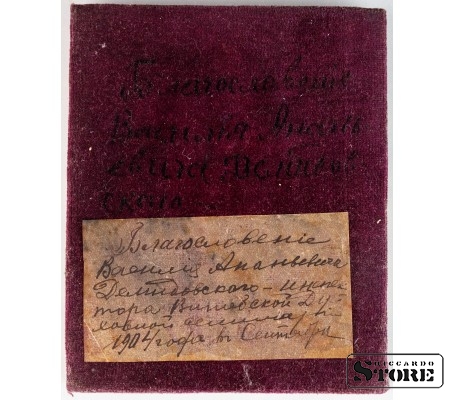 Благословенie
Василiя Анань
евича Демьяов
скаго
Благословенiе
Василiя Ананьевича
Демьяновского - инспек
тора Вифлевской Ду
ховной семинарiи
1904 года
RICCARDO
STORE